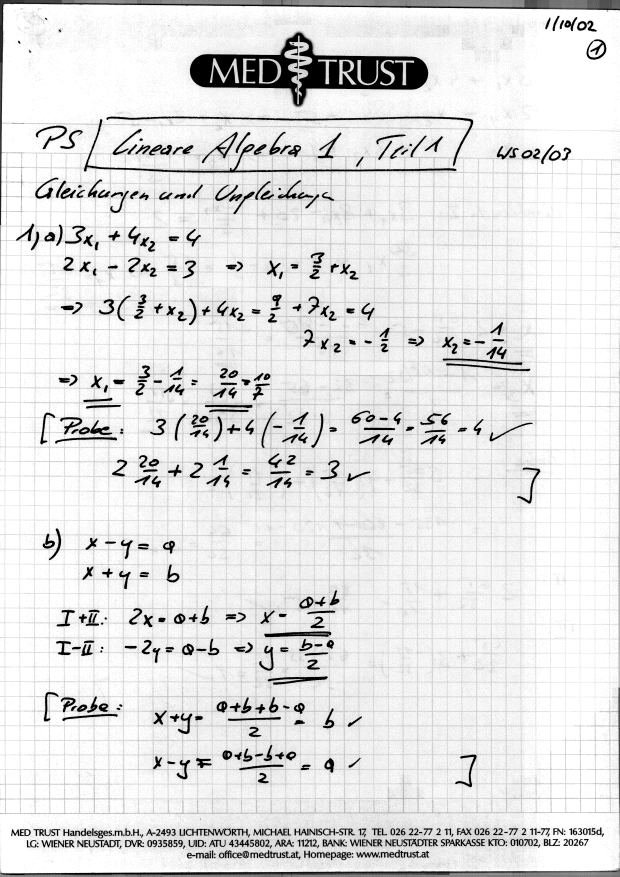 1/10/02
1
MED TRUST
PS Lineare Algebra 1, Teil 1 WS 02/03
Gleichungen und Ungleichungen
1, a) 3x₁ + 4x₂ = 4
2x₁ - 2x₂ = 3 => x₁ = 3/2 + x₂
=> 3(3/2 + x₂) + 4x₂ = 9/2 + 7x₂ = 4
7x₂ = -1/2 => x₂ = -1/14
=> x₁ = 3/2 - 1/14 = 20/14 = 10/7
[Probe: 3(20/14) + 4(-1/14) = 60-4/14 = 56/14 = 4 ✓
2 20/14 + 2 1/14 = 42/14 = 3 ✓ ]
b) x - y = a
x + y = b
I+II: 2x = a+b => x = a+b/2
I-II: -2y = a-b => y = b-a/2
[Probe: x+y = a+b+b-a/2 = b ✓
x-y = a+b-b+a/2 = a ✓ ]
MED TRUST Handelsges.m.b.H., A-2493 LICHTENWÖRTH, MICHAEL HAINISCH-STR. 17, TEL. 026 22-77 2 11, FAX 026 22-77 2 11-77, FN: 163015d,
LG: WIENER NEUSTADT, DVR: 0935859, UID: ATU 43445802, ARA: 11212, BANK: WIENER NEUSTÄDTER SPARKASSE KTO: 010702, BLZ: 20267
e-mail: office@medtrust.at, Homepage: www.medtrust.at